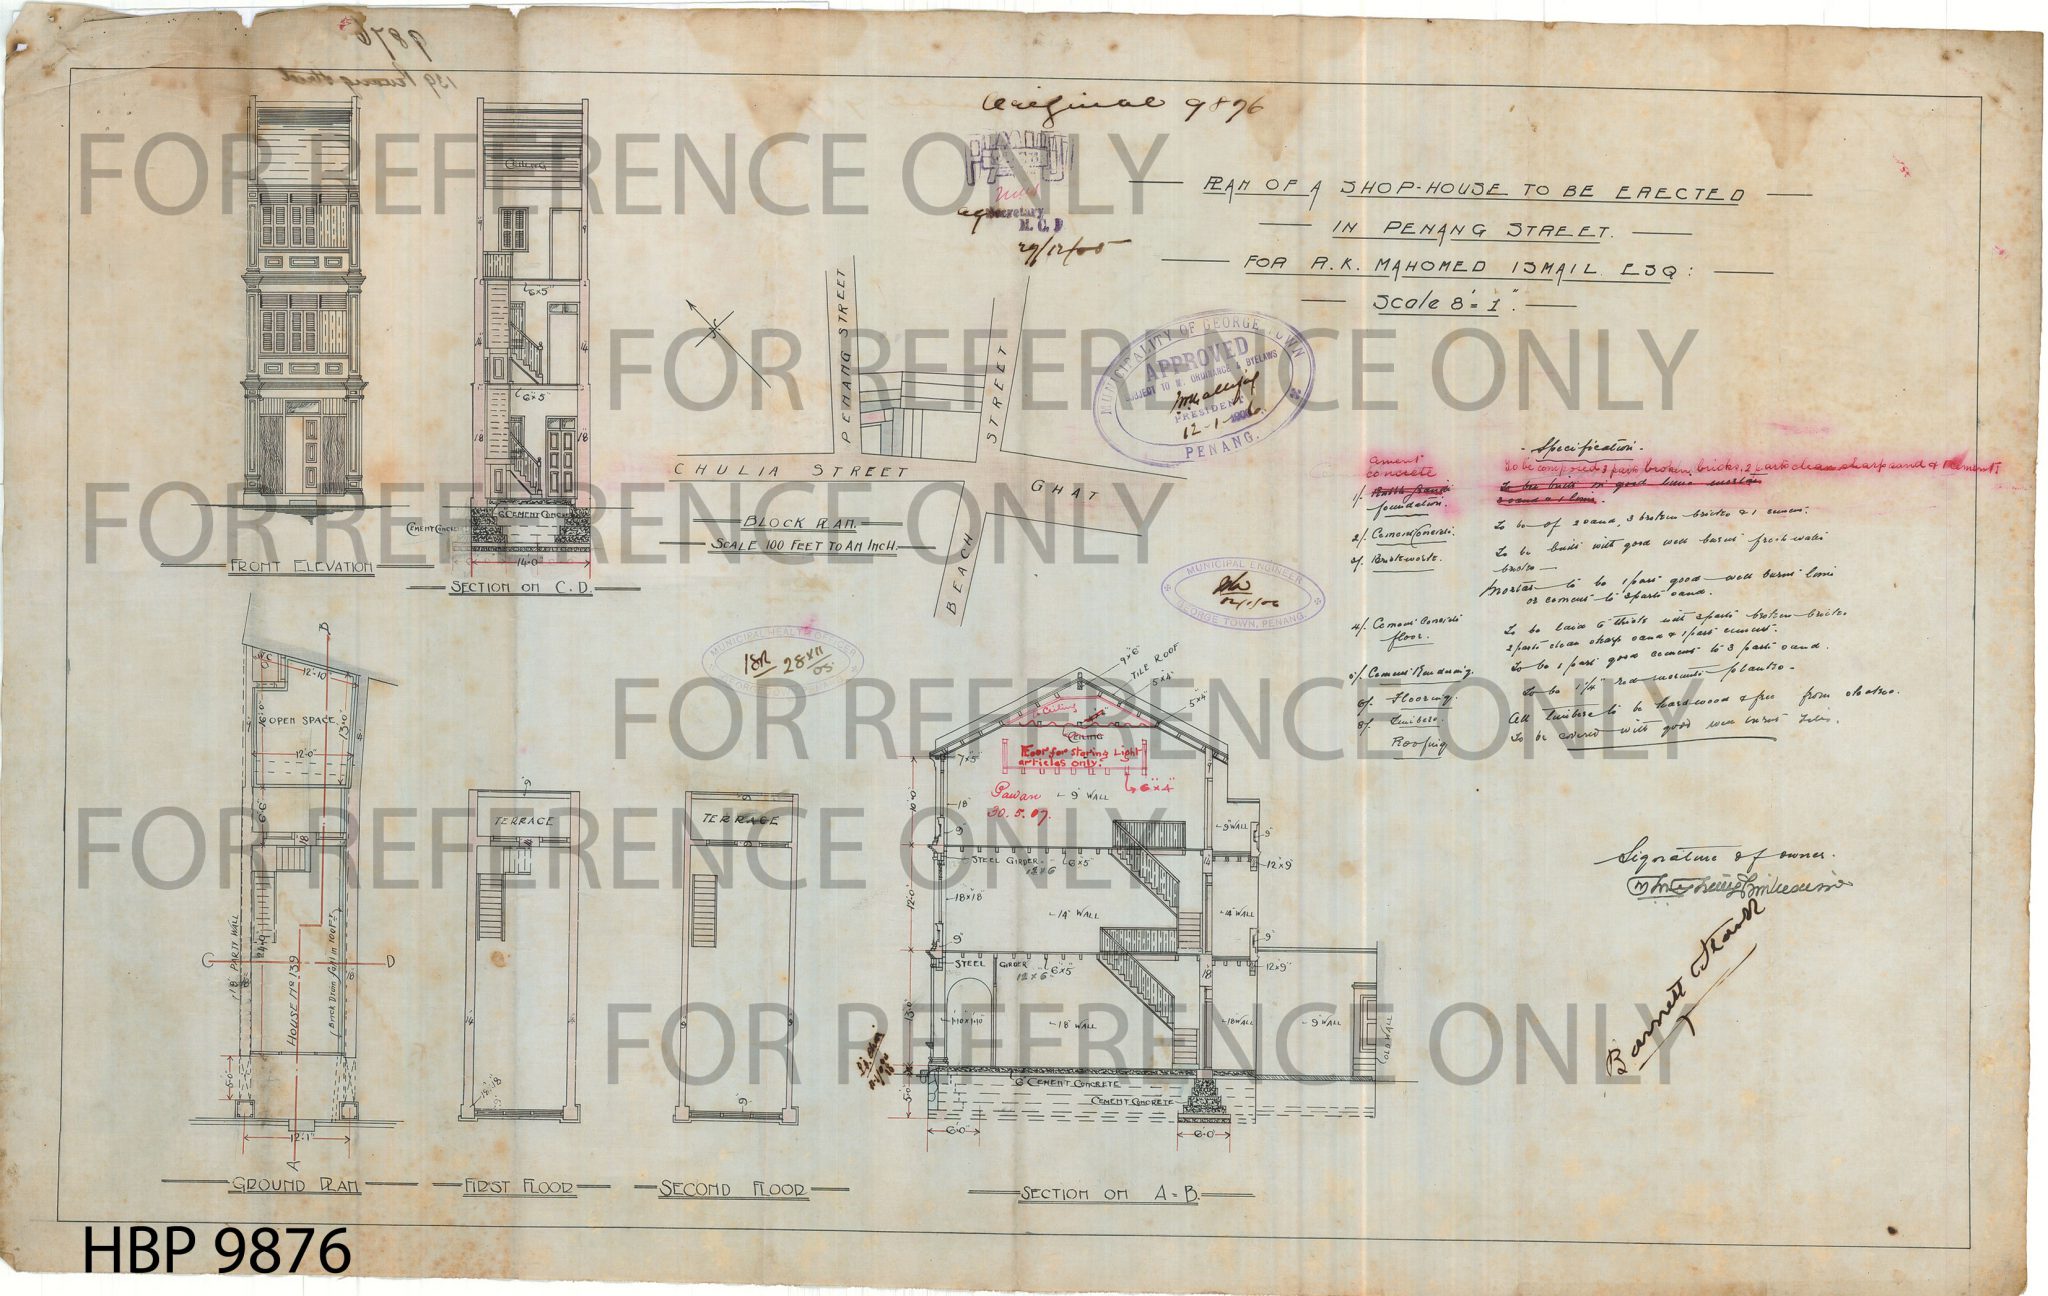 9876
139 Penang Street
Original 9876
Secretary
M. C. P
29/12/05
PLAN OF A SHOP-HOUSE TO BE ERECTED
IN PENANG STREET.
FOR R.K. MAHOMED ISMAIL. ESQ:
Scale 8' = 1".
MUNICIPALITY OF GEORGE TOWN
APPROVED
SUBJECT TO M. ORDINANCE & BYELAWS
PRESIDENT
12-1-1906.
PENANG.
CEILING
9
9
6"x5"
14
14
6"x5"
18
18
6" CEMENT CONCRETE
CEMENT CONCRETE
14'-0"
FRONT ELEVATION
SECTION ON C.D.
PENANG STREET
CHULIA STREET
STREET
GHAT
BEACH
BLOCK PLAN.
SCALE 100 FEET TO AN INCH.
MUNICIPAL HEALTH OFFICER
28 XII 05
MUNICIPAL ENGINEER
GEORGE TOWN, PENANG.
- Specification. -
Cement concrete
To be composed 3 parts broken bricks, 2 parts clean sharp sand & 1 cement
1/. foundation.
To be built in good lime mortar
2 sand & 1 lime.
2/. Cement Concrete.
To be of 2 sand, 3 broken bricks & 1 cement.
3/. Brickwork.
To be built with good well burnt fresh water
bricks -
Mortar to be 1 part good well burnt lime
or cement to 2 parts sand.
4/. Cement Concrete floor.
To be laid 6" thick with 3 parts broken bricks
2 parts clean sharp sand & 1 part cement.
5/. Cement Rendering.
To be 1 part good cement to 3 parts sand.
6/. Flooring.
To be 1¼" red meranti planks -
8/. Timbers.
All timbers to be hardwood & free from shakes.
Roofing
To be covered with good well burnt tiles.
Signature of owner.
12'-10"
OPEN SPACE
13'-0"
12'-0"
18" PARTY WALL
24'-9"
HOUSE No 139
Brick Drain fall in 100 Ft
C
D
B
5'-0"
12'-1"
A
GROUND PLAN
9"
TERRACE
FIRST FLOOR
9"
TERRACE
9"
SECOND FLOOR
9"x6"
TILE ROOF
5"x4"
5"x4"
Ceiling
CEILING
Floor for storing Light
articles only.
6"x4"
30.5.07.
7"x5"
9" WALL
18"
9"
9" WALL
9"
STEEL GIRDER
12"x6"
6"x5"
12"x9"
18"x18"
14" WALL
14" WALL
9"
9"
STEEL GIRDER
12"x6"
6"x5"
12"x9"
18
1'-10"x1'-10"
18" WALL
18" WALL
9" WALL
OLD WALL
10'-0"
12'-0"
13'-0"
5'-0"
6" CEMENT CONCRETE
CEMENT CONCRETE
6'-0"
6'-0"
SECTION ON A-B.
FOR REFERENCE ONLY
FOR REFERENCE ONLY
FOR REFERENCE ONLY
FOR REFERENCE ONLY
FOR REFERENCE ONLY
FOR REFERENCE ONLY
FOR REFERENCE ONLY
HBP 9876